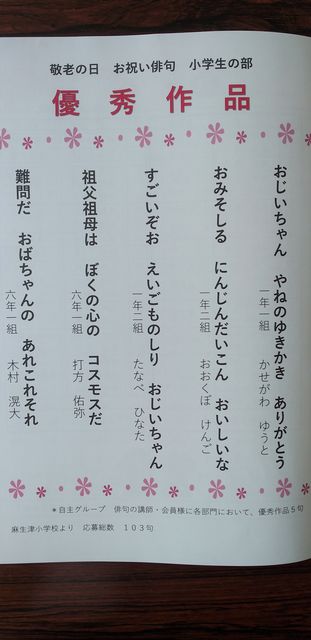 敬老の日　お祝い俳句　小学生の部
優秀作品
おじいちゃん　やねのゆきかき　ありがとう
一年一組　かせがわ　ゆうと
おみそしる　にんじんだいこん　おいしいな
一年二組　おおくぼ　けんご
すごいぞお　えいごものしり　おじいちゃん
一年二組　たなべ　ひなた
祖父祖母は　ぼくの心の　コスモスだ
六年一組　打方　佑弥
難問だ　おばちゃんの　あれこれそれ
六年一組　木村　滉大
＊自主グループ　俳句の講師・会員様に各部門において、優秀作品５句
麻生津小学校より　応募総数　１０３句